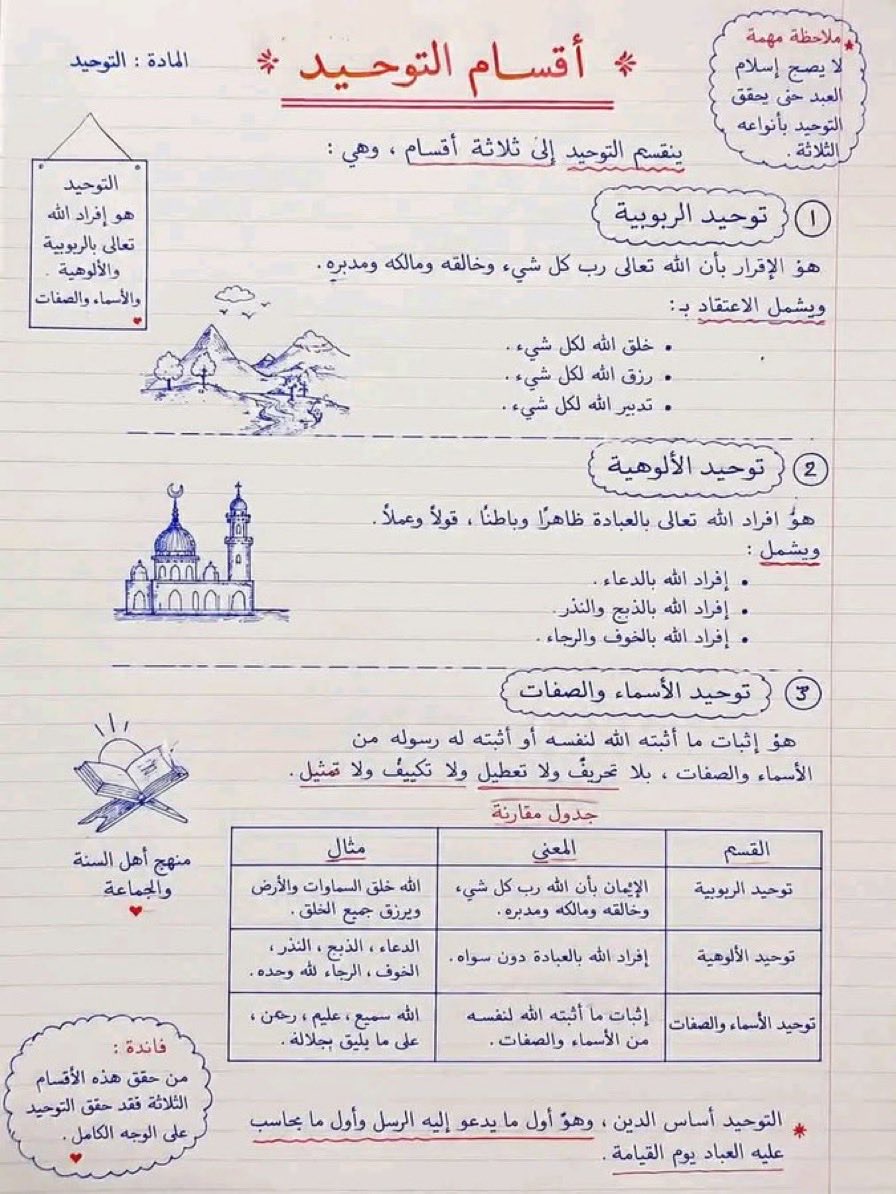 المادة : التوحيد
* أقسام التوحيد *
ملاحظة مهمة
لا يصح إسلام
العبد حتى يحقق
التوحيد بأنواعه
الثلاثة .
ينقسم التوحيد إلى ثلاثة أقسام ، وهي :
التوحيد
هو إفراد الله
تعالى بالربوبية
والألوهية .
والأسماء والصفات
1 توحيد الربوبية
هو الإقرار بأن الله تعالى رب كل شيء وخالقه ومالكه ومدبره.
ويشمل الاعتقاد بـ:
• خلق الله لكل شيء .
• رزق الله لكل شيء .
• تدبير الله لكل شيء .
2 توحيد الألوهية
هوُّ افراد الله تعالى بالعبادة ظاهرًا وباطنًا ، قولاً وعملاً .
ويشمل :
• إفراد الله بالدعاء .
• إفراد الله بالذبح والنذر.
• إفراد الله بالخوف والرجاء .
3 توحيد الأسماء والصفات
هو إثبات ما أثبته الله لنفسه أو أثبته له رسوله من
الأسماء والصفات ، بلا تحريفٌ ولا تعطيل ولا تكييفُ ولا تمثيل .
منهج أهل السنة
والجماعة
جدول مقارنة
القسم المعنى مثال
توحيد الربوبية
الإيمان بأن الله رب كل شيء،
وخالقه ومالكه ومدبره .
الله خلق السماوات والأرض
ويرزق جميع الخلق .
توحيد الألوهية
إفراد الله بالعبادة دون سواه .
الدعاء ، الذبح ، النذر ،
الخوف ، الرجاء لله وحده .
توحيد الأسماء والصفات
إثبات ما أثبته الله لنفسه
من الأسماء والصفات .
الله سميع ، عليم ، رحمن ،
على ما يليق بجلالة .
فائدة :
من حقق هذه الأقسام
الثلاثة فقد حقق التوحيد
على الوجه الكامل .
* التوحيد أساس الدين ، وهوّ أول ما يدعو إليه الرسل وأول ما يحاسب
عليه العباد يوم القيامة .